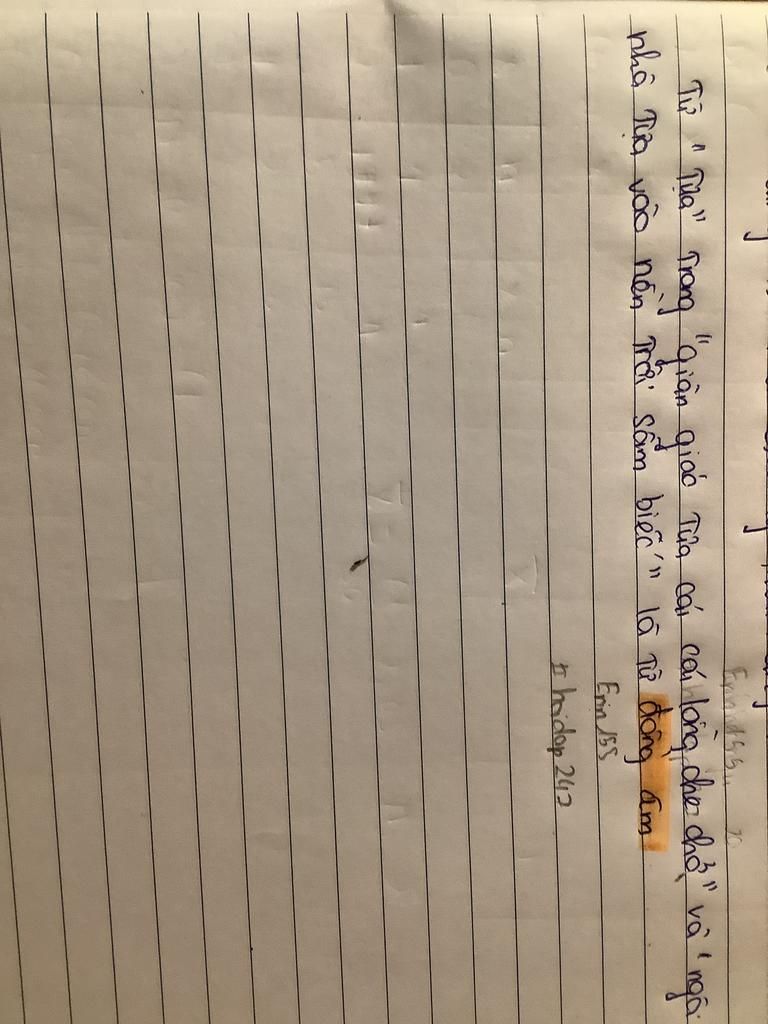 Từ " Tựa" Trong "giàn giáo Tựa cái cái lồng che chở" và "ngôi
nhà Tựa vào nền Trời sẫm biếc" là Từ đồng âm
Erin155
# hoidap247